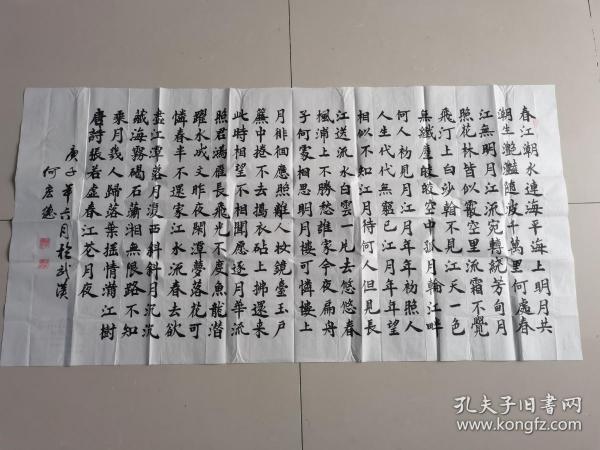 春江潮水連海平海上明月共
潮生灩灩隨波千萬里何處春
江無明月江流宛轉繞芳甸月
照花林皆似霰空里流霜不覺
飛汀上白沙看不見江天一色
無纖塵皎皎空中孤月輪江畔
何人初見月江月年年初照人
人生代代無窮已江月年年望
相似不知江月待何人但見長
江送流水白雲一片去悠悠青
楓浦上不勝愁誰家今夜扁舟
子何處相思明月樓可憐樓上
月徘徊應照離人妝鏡臺玉戶
簾中捲不去搗衣砧上拂還来
此時相望不相聞愿逐月華流
照君鴻雁長飛光不度魚龍潛
躍水成文昨夜閑潭夢落花可
憐春半不還家江水流春去欲
盡江潭落月復西斜斜月沉沉
藏海霧碣石瀟湘無限路不知
乘月幾人歸落葉搖情滿江樹
唐詩張若虛春江花月夜
庚子年六月於武漢
何
孔夫子旧书网
www.kongfz.com